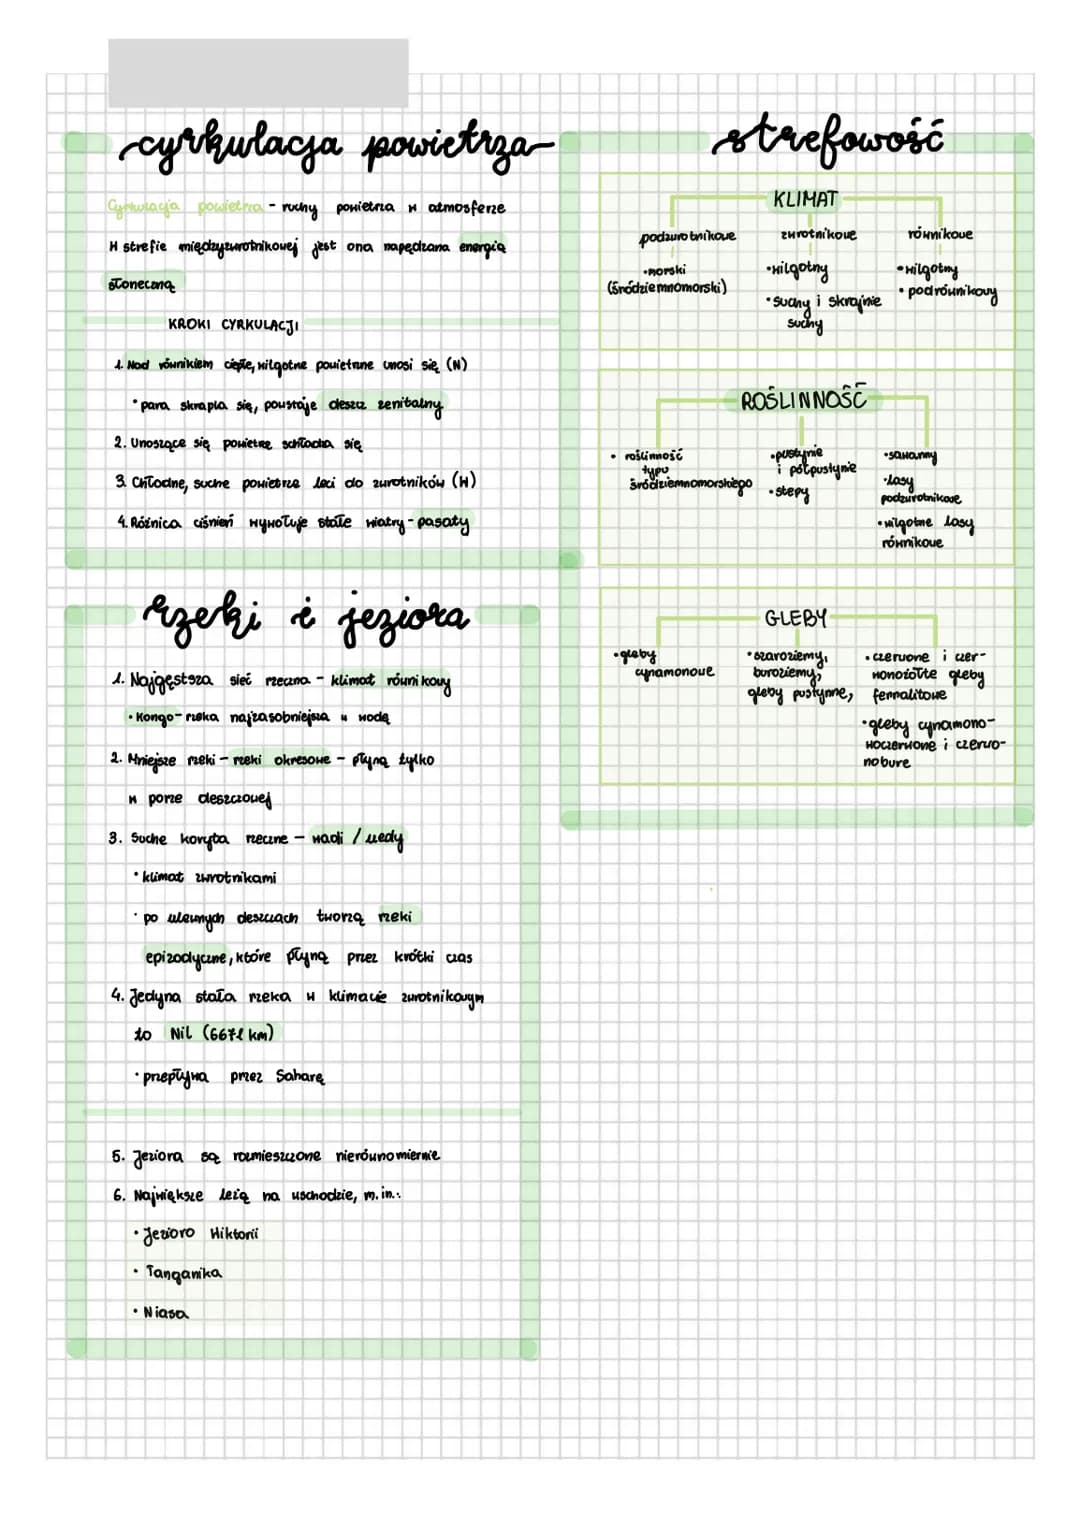 cyrkulacja powietrza
Cyrkulacja powietrza - ruchy powietrza w atmosferze
W strefie międzyzwrotnikowej jest ona napędzana energią
słoneczną
KROKI CYRKULACJI
1. Nad równikiem ciepłe, wilgotne powietrzne unosi się (N)
• para skrapla się, powstaje deszcz zenitalny
2. Unoszące się powietrze schładza się
3. Chłodne, suche powietrze leci do zwrotników (W)
4. Różnica ciśnień wywołuje stałe wiatry - pasaty
rzeki i jeziora
1. Najgęstsza sieć rzeczna - klimat równikowy
• Kongo - rzeka najzasobniejsza w wodę
2. Mniejsze rzeki - rzeki okresowe - płyną tylko
w porze deszczowej
3. Suche koryta rzeczne - wadi / uedy
• klimat zwrotnikami
• po ulewnych deszczach tworzą rzeki
epizodyczne, które płyną przez krótki czas
4. Jedyna stała rzeka w klimacie zwrotnikowym
to Nil (6671 km)
• przepływa przez Saharę
5. Jeziora są rozmieszczone nierównomiernie
6. Największe leżą na wschodzie, m.in.:
• Jezioro Wiktorii
• Tanganika
• Niasa
strefowość
KLIMAT
podzwrotnikowe zwrotnikowe równikowe
• morski
(śródziemnomorski)
• wilgotny
• suchy i skrajnie
suchy
• wilgotny
• podrównikowy
ROŚLINNOŚĆ
• roślinność
typu
śródziemnomorskiego
• pustynie
i półpustynie
• stepy
• sawanny
• lasy
podzwrotnikowe
• wilgotne lasy
równikowe
GLEBY
• gleby
cynamonowe
• szaroziemy,
buroziemy,
gleby pustynne,
• czerwone i czer-
wonożółte gleby
ferralitowe
• gleby cynamono-
woczerwone i czerwo-
nobure